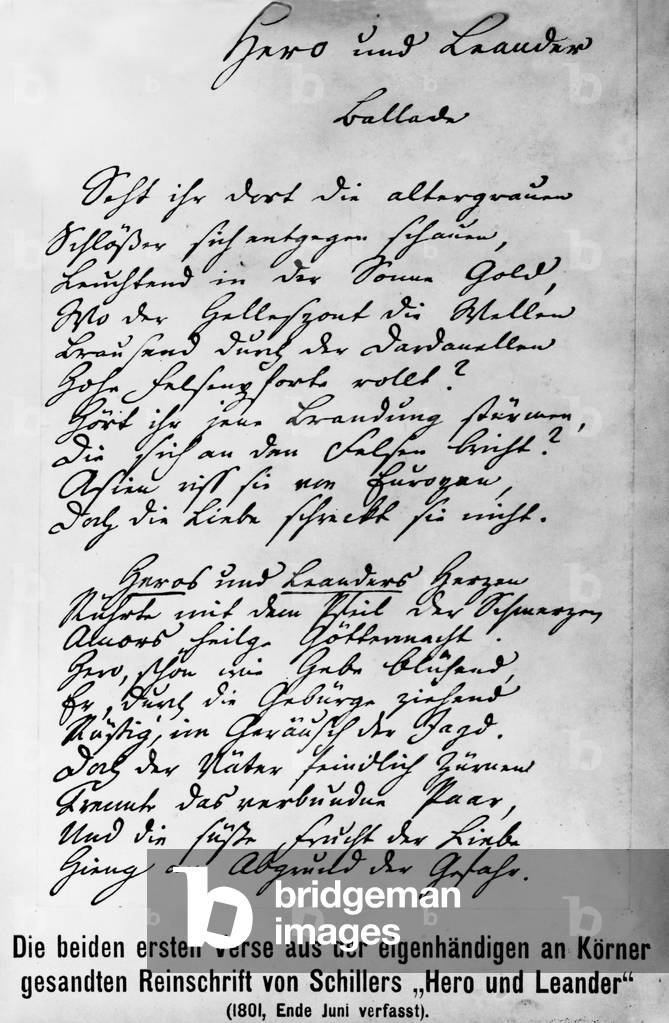 Hero und Leander
Ballade
Seht ihr dort die altergrauen
Schlößer sich entgegen schauen,
Leuchtend in der Sonne Gold,
Wo der Hellespont die Wellen
Brausend durch der Dardanellen
Hohe Felsenpforte rollt?
Hört ihr jene Brandung stürmen,
Die sich an den Felsen bricht?
Asien riss sie von Europen,
Doch die Liebe schreckt sie nicht.
Heros und Leanders Herzen
Rührte mit dem Pfeil der Schmerzen
Amors heilge Göttermacht.
Hero, schön wie Hebe blühend,
Er, durch die Gebürge ziehend
Rüstig, im Geräusch der Jagd.
Doch der Väter feindlich Zürnen
Trennte das verbundne Paar,
Und die süße Frucht der Liebe
Hieng am Abgrund der Gefahr.
b bridgeman
images
Die beiden ersten Verse aus der eigenhändigen an Körner
gesandten Reinschrift von Schillers „Hero und Leander“
(1801, Ende Juni verfasst).